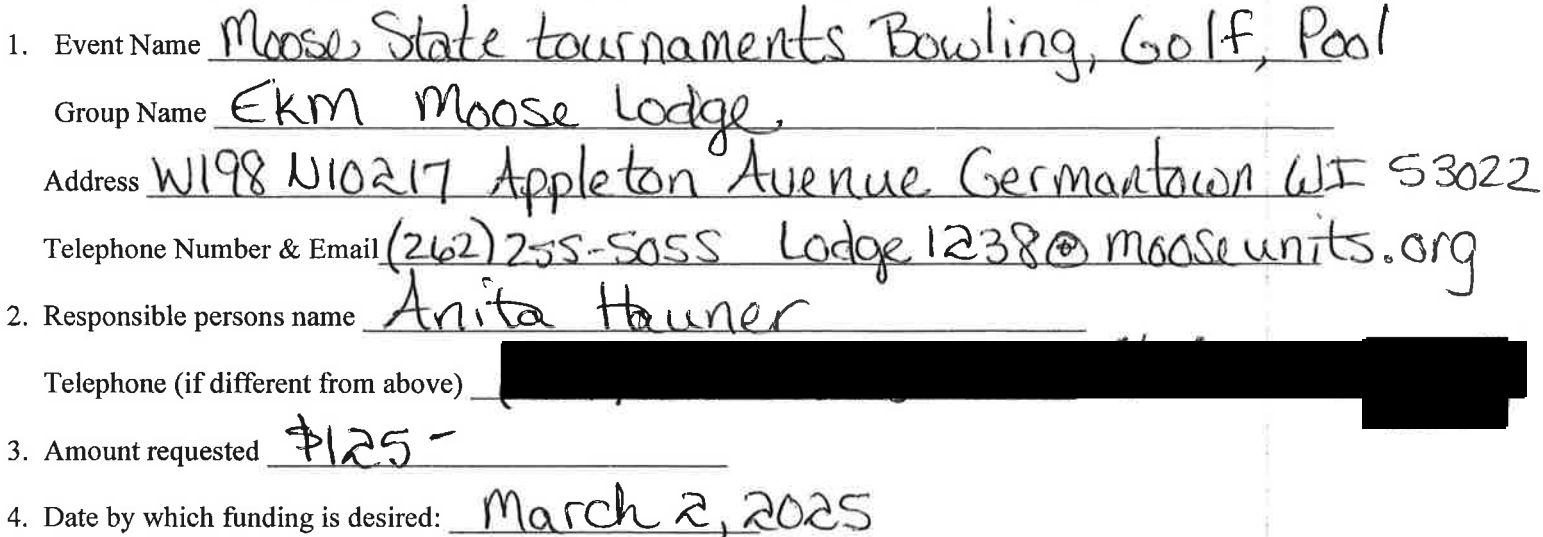 1. Event Name Moose State tournaments Bowling, Golf, Pool
Group Name EKM Moose Lodge
Address W198 N10217 Appleton Avenue Germantown WI 53022
Telephone Number & Email (262) 255-5055 Lodge1238@mooseunits.org
2. Responsible persons name Anita Hauner
Telephone (if different from above)
3. Amount requested $125-
4. Date by which funding is desired: March 2, 2025